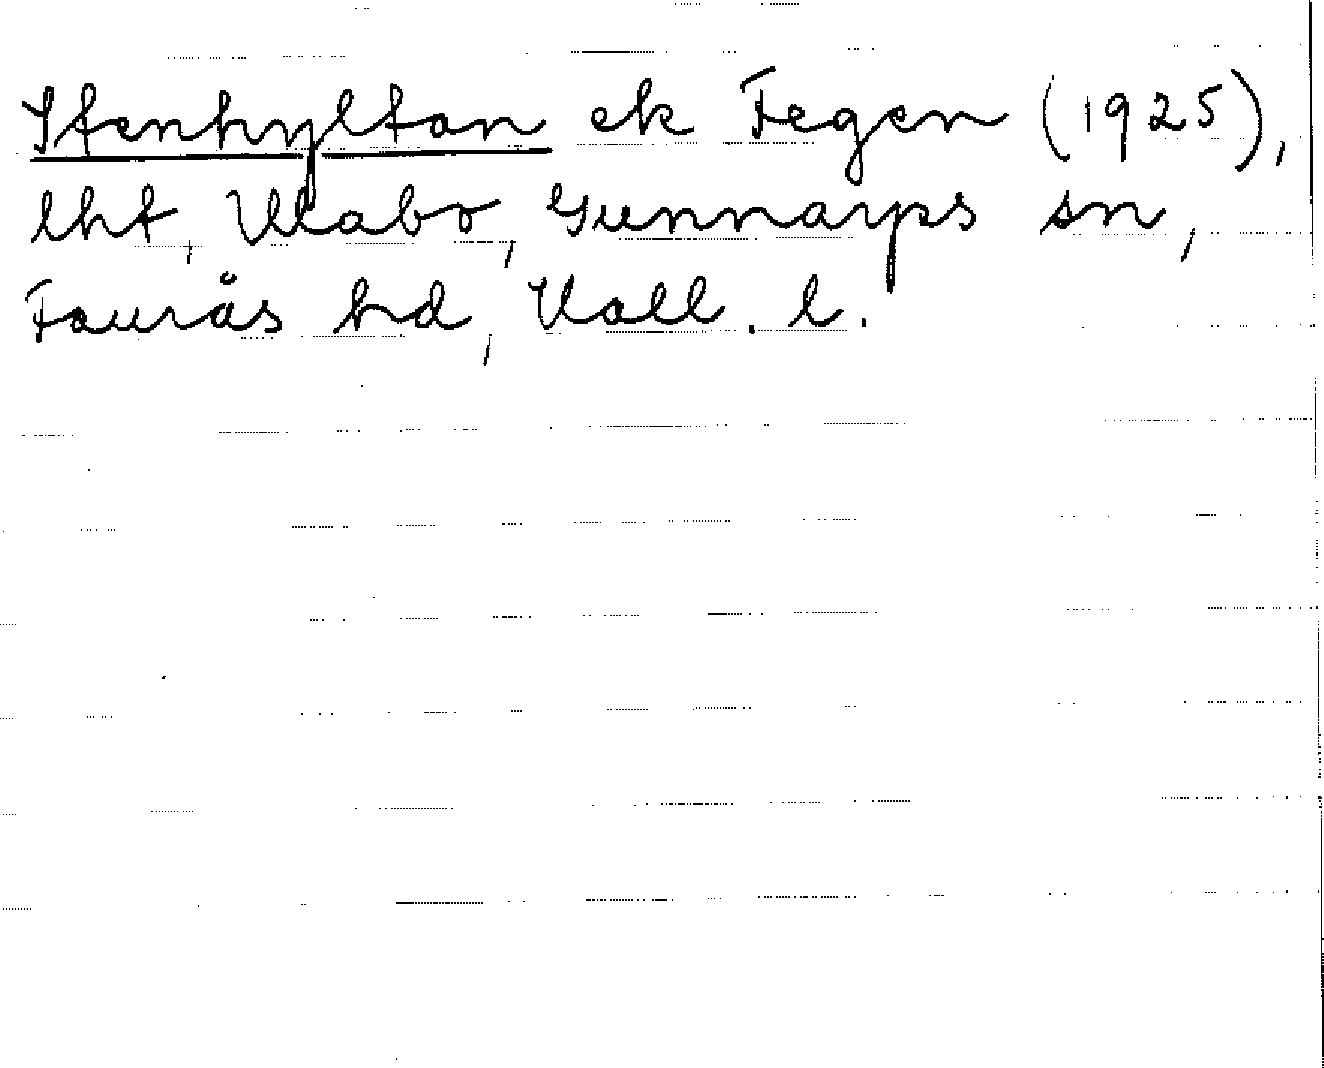 Stenhyltan ek Fegen (1925),
lht, Ulabo, Gunnarps sn,
Faurås hd, Hall. l.